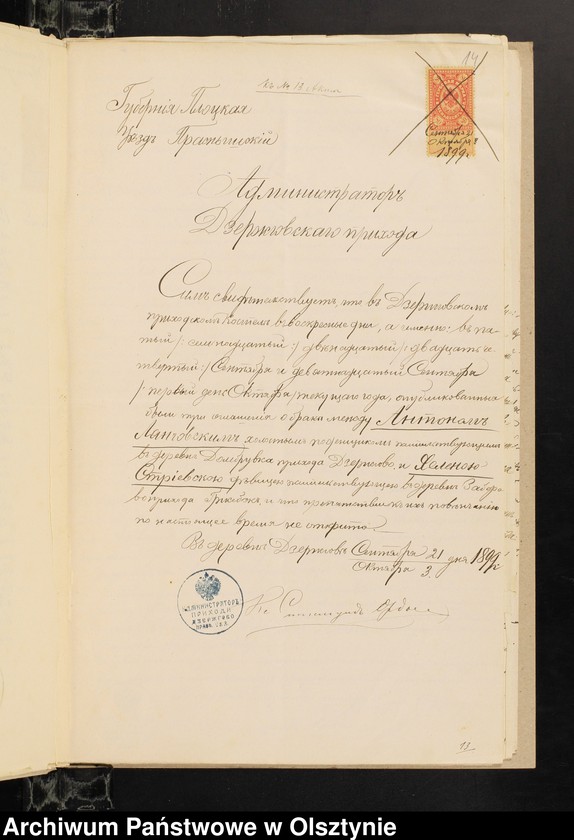 14
къ № 13
Губернія Плоцкая
Уѣздъ Праснышскій
Сентября 21
Октября 3
1899.
Администраторъ
Дзержговскаго прихода
Симъ свидѣтельствуетъ, что въ Дзержговскомъ
приходскомъ Костелѣ въ воскресные дни, а именно: въ пя-
тый /: семнадцатый :/ двѣнадцатый /: двадцать че-
твертый :/ Сентября и девятнадцатый Сентября
/: первый день Октября / текущаго года, опубликованы
были три оглашенія о бракѣ между Антономъ
холостымъ жительствующимъ
въ деревнѣ Домбрувка прихода Дзержгово, и Еленою
дѣвицею жительствующею въ деревнѣ
прихода и что препятствія къ ихъ
по настоящее время не открыто.
Въ деревнѣ Дзержговѣ Сентября 21 дня 1899 г.
Октября 3.
АДМИНИСТРАТОРЪ
ПРИХОДА
ДЗЕРЖГОВО
Кс.
13
Archiwum Państwowe w Olsztynie